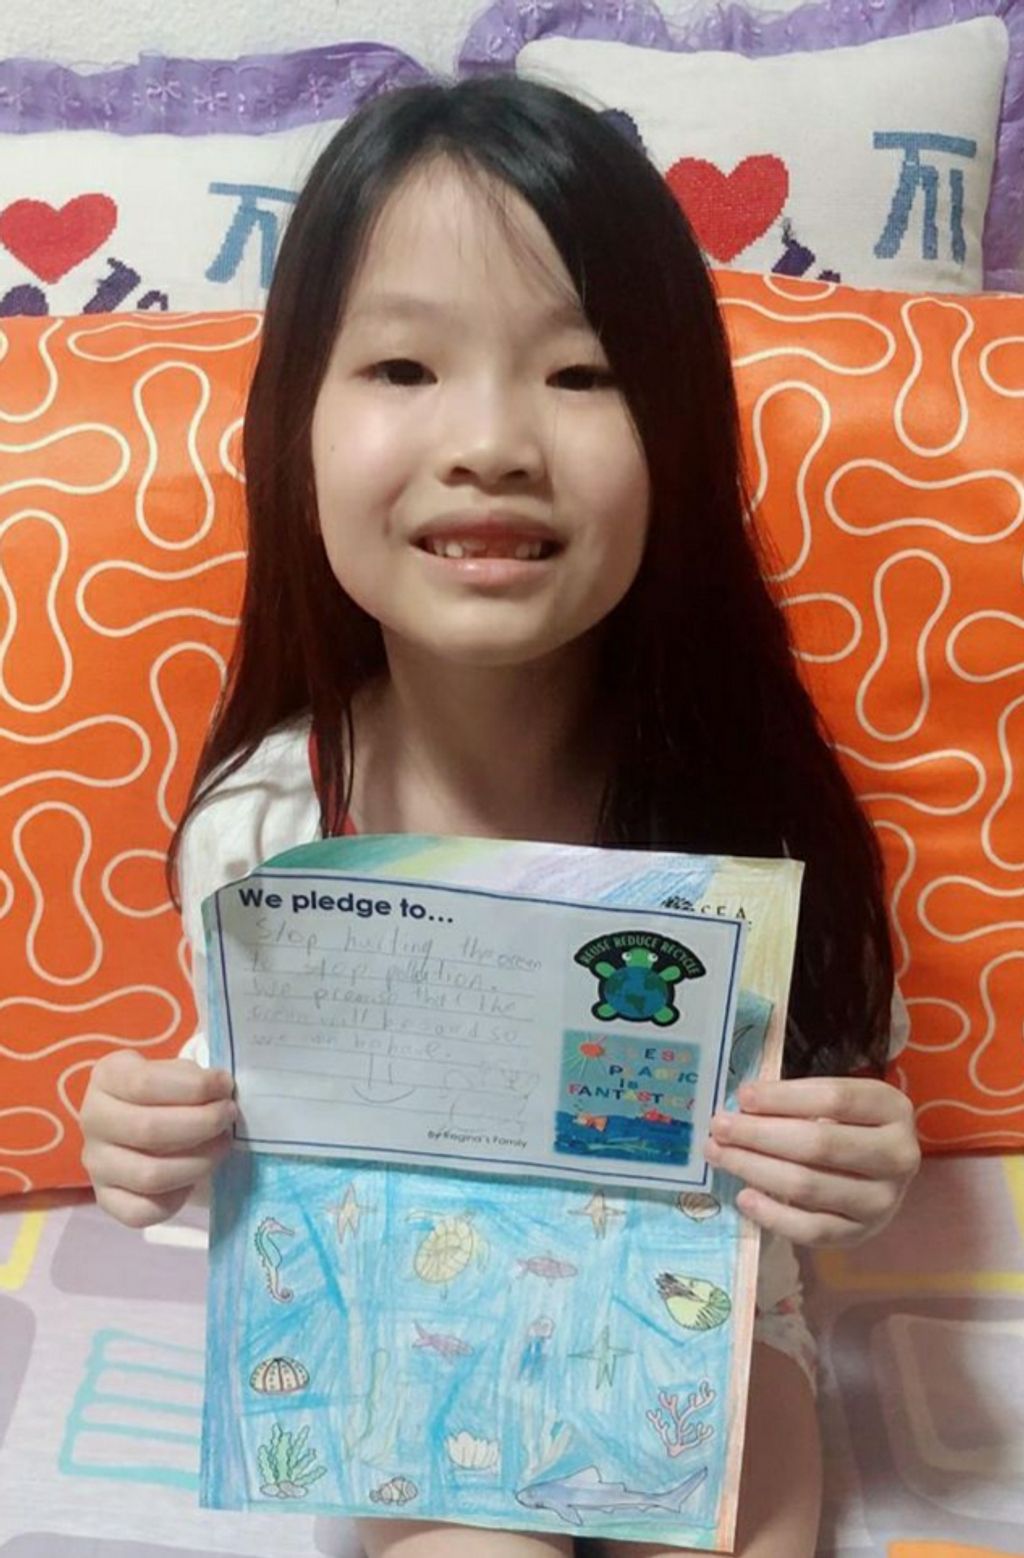 We pledge to...
Stop hurting the ocean
to stop pollution.
We promise that the
ocean will be
we
By Regina's Family
REUSE REDUCE RECYCLE
LESS
PLASTIC
is
FANTASTIC!
SEA